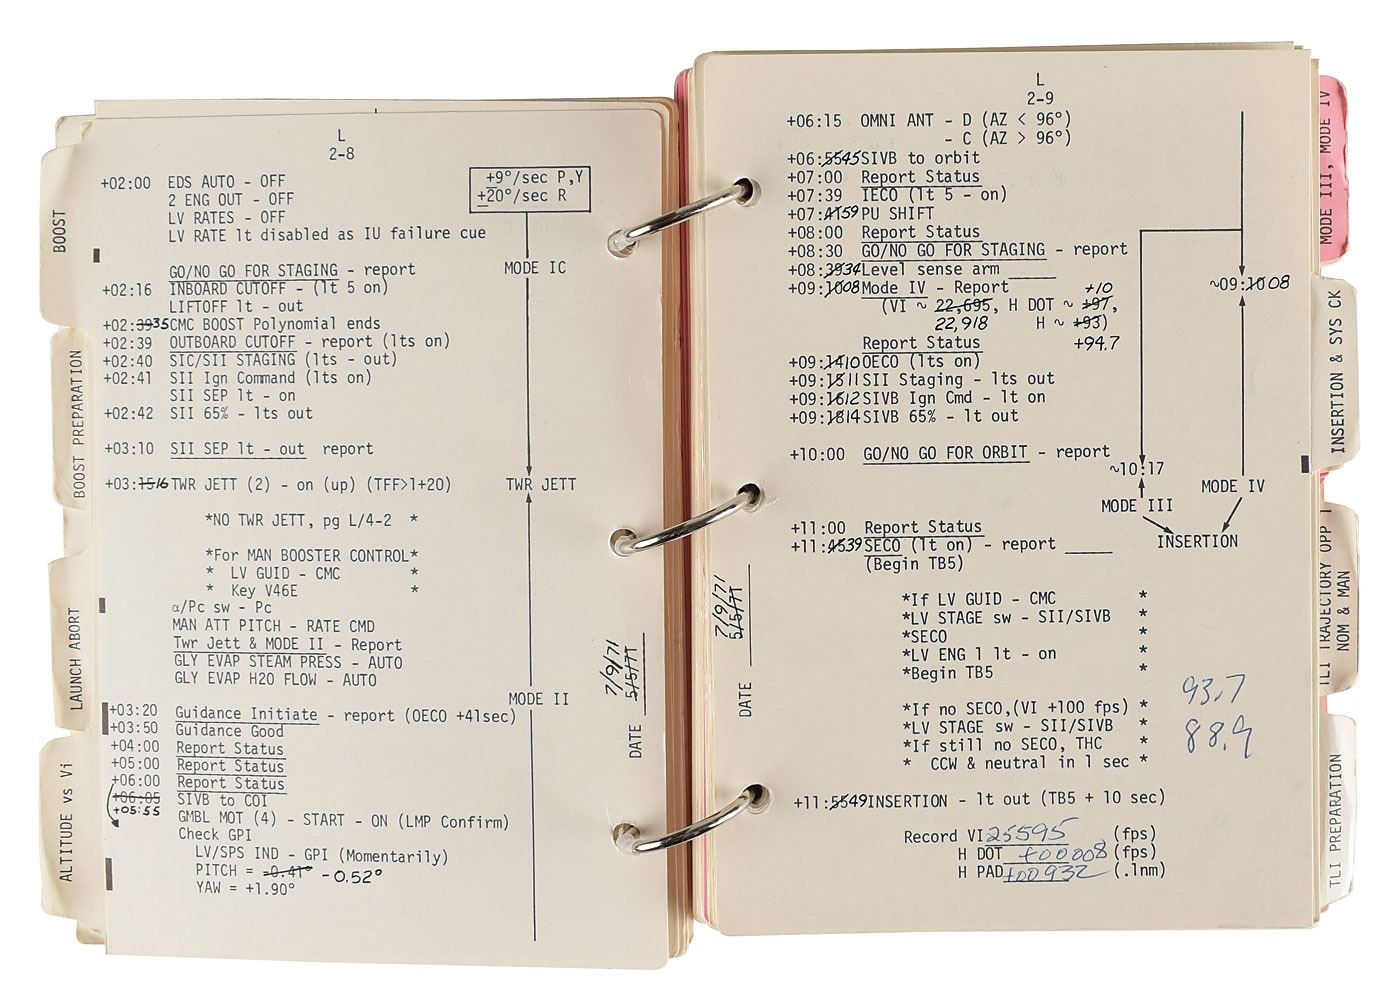 L
2-8
+02:00 EDS AUTO - OFF
2 ENG OUT - OFF
LV RATES - OFF
LV RATE lt disabled as IU failure cue
+9°/sec P,Y
+20°/sec R
GO/NO GO FOR STAGING - report
MODE IC
+02:16 INBOARD CUTOFF - (lt 5 on)
LIFTOFF lt - out
+02:3935 CMC BOOST Polynomial ends
+02:39 OUTBOARD CUTOFF - report (lts on)
+02:40 SIC/SII STAGING (lts - out)
+02:41 SII Ign Command (lts on)
SII SEP lt - on
+02:42 SII 65% - lts out
+03:10 SII SEP lt - out report
+03:1516 TWR JETT (2) - on (up) (TFF>1+20)
TWR JETT
*NO TWR JETT, pg L/4-2 *
*For MAN BOOSTER CONTROL*
* LV GUID - CMC *
* Key V46E *
α/Pc sw - Pc
MAN ATT PITCH - RATE CMD
Twr Jett & MODE II - Report
GLY EVAP STEAM PRESS - AUTO
GLY EVAP H2O FLOW - AUTO
MODE II
+03:20 Guidance Initiate - report (OECO +41sec)
+03:50 Guidance Good
+04:00 Report Status
+05:00 Report Status
+06:00 Report Status
+06:05 SIVB to COI
+05:55
GMBL MOT (4) - START - ON (LMP Confirm)
Check GPI
LV/SPS IND - GPI (Momentarily)
PITCH = -0.41° -0.52°
YAW = +1.90°
DATE 5/5/71
7/9/71
BOOST
BOOST PREPARATION
LAUNCH ABORT
ALTITUDE vs Vi
L
2-9
+06:15 OMNI ANT - D (AZ < 96°)
- C (AZ > 96°)
+06:5545 SIVB to orbit
+07:00 Report Status
+07:39 IECO (lt 5 - on)
+07:4159 PU SHIFT
+08:00 Report Status
+08:30 GO/NO GO FOR STAGING - report
+08:3934 Level sense arm
+09:1008 Mode IV - Report +10
~09:1008
(VI ~ 22,695, H DOT ~ +97,
22,918 H ~ +93)
Report Status +94.7
+09:1410 OECO (lts on)
+09:1511 SII Staging - lts out
+09:1612 SIVB Ign Cmd - lt on
+09:1814 SIVB 65% - lt out
+10:00 GO/NO GO FOR ORBIT - report
~10:17
MODE III
MODE IV
+11:00 Report Status
+11:4539 SECO (lt on) - report
INSERTION
(Begin TB5)
*If LV GUID - CMC *
*LV STAGE sw - SII/SIVB *
*SECO *
*LV ENG 1 lt - on *
*Begin TB5 *
*If no SECO,(VI +100 fps) *
*LV STAGE sw - SII/SIVB *
*If still no SECO, THC *
* CCW & neutral in 1 sec *
93.7
88.9
+11:5549 INSERTION - lt out (TB5 + 10 sec)
Record VI 25595 (fps)
H DOT +00008 (fps)
H PAD +00932 (.1nm)
DATE 5/5/71
7/9/71
MODE III, MODE IV
INSERTION & SYS CK
TLI TRAJECTORY OPP 1
NOM & MAN
TLI PREPARATION